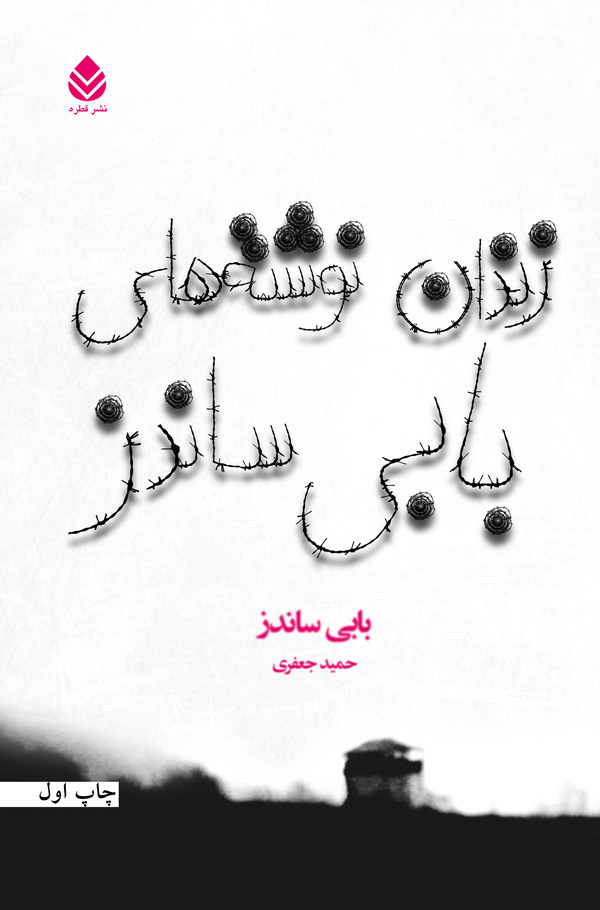 نشر قطره
زندان نوشته‌های
بابی ساندز
بابی ساندز
حمید جعفری
چاپ اول